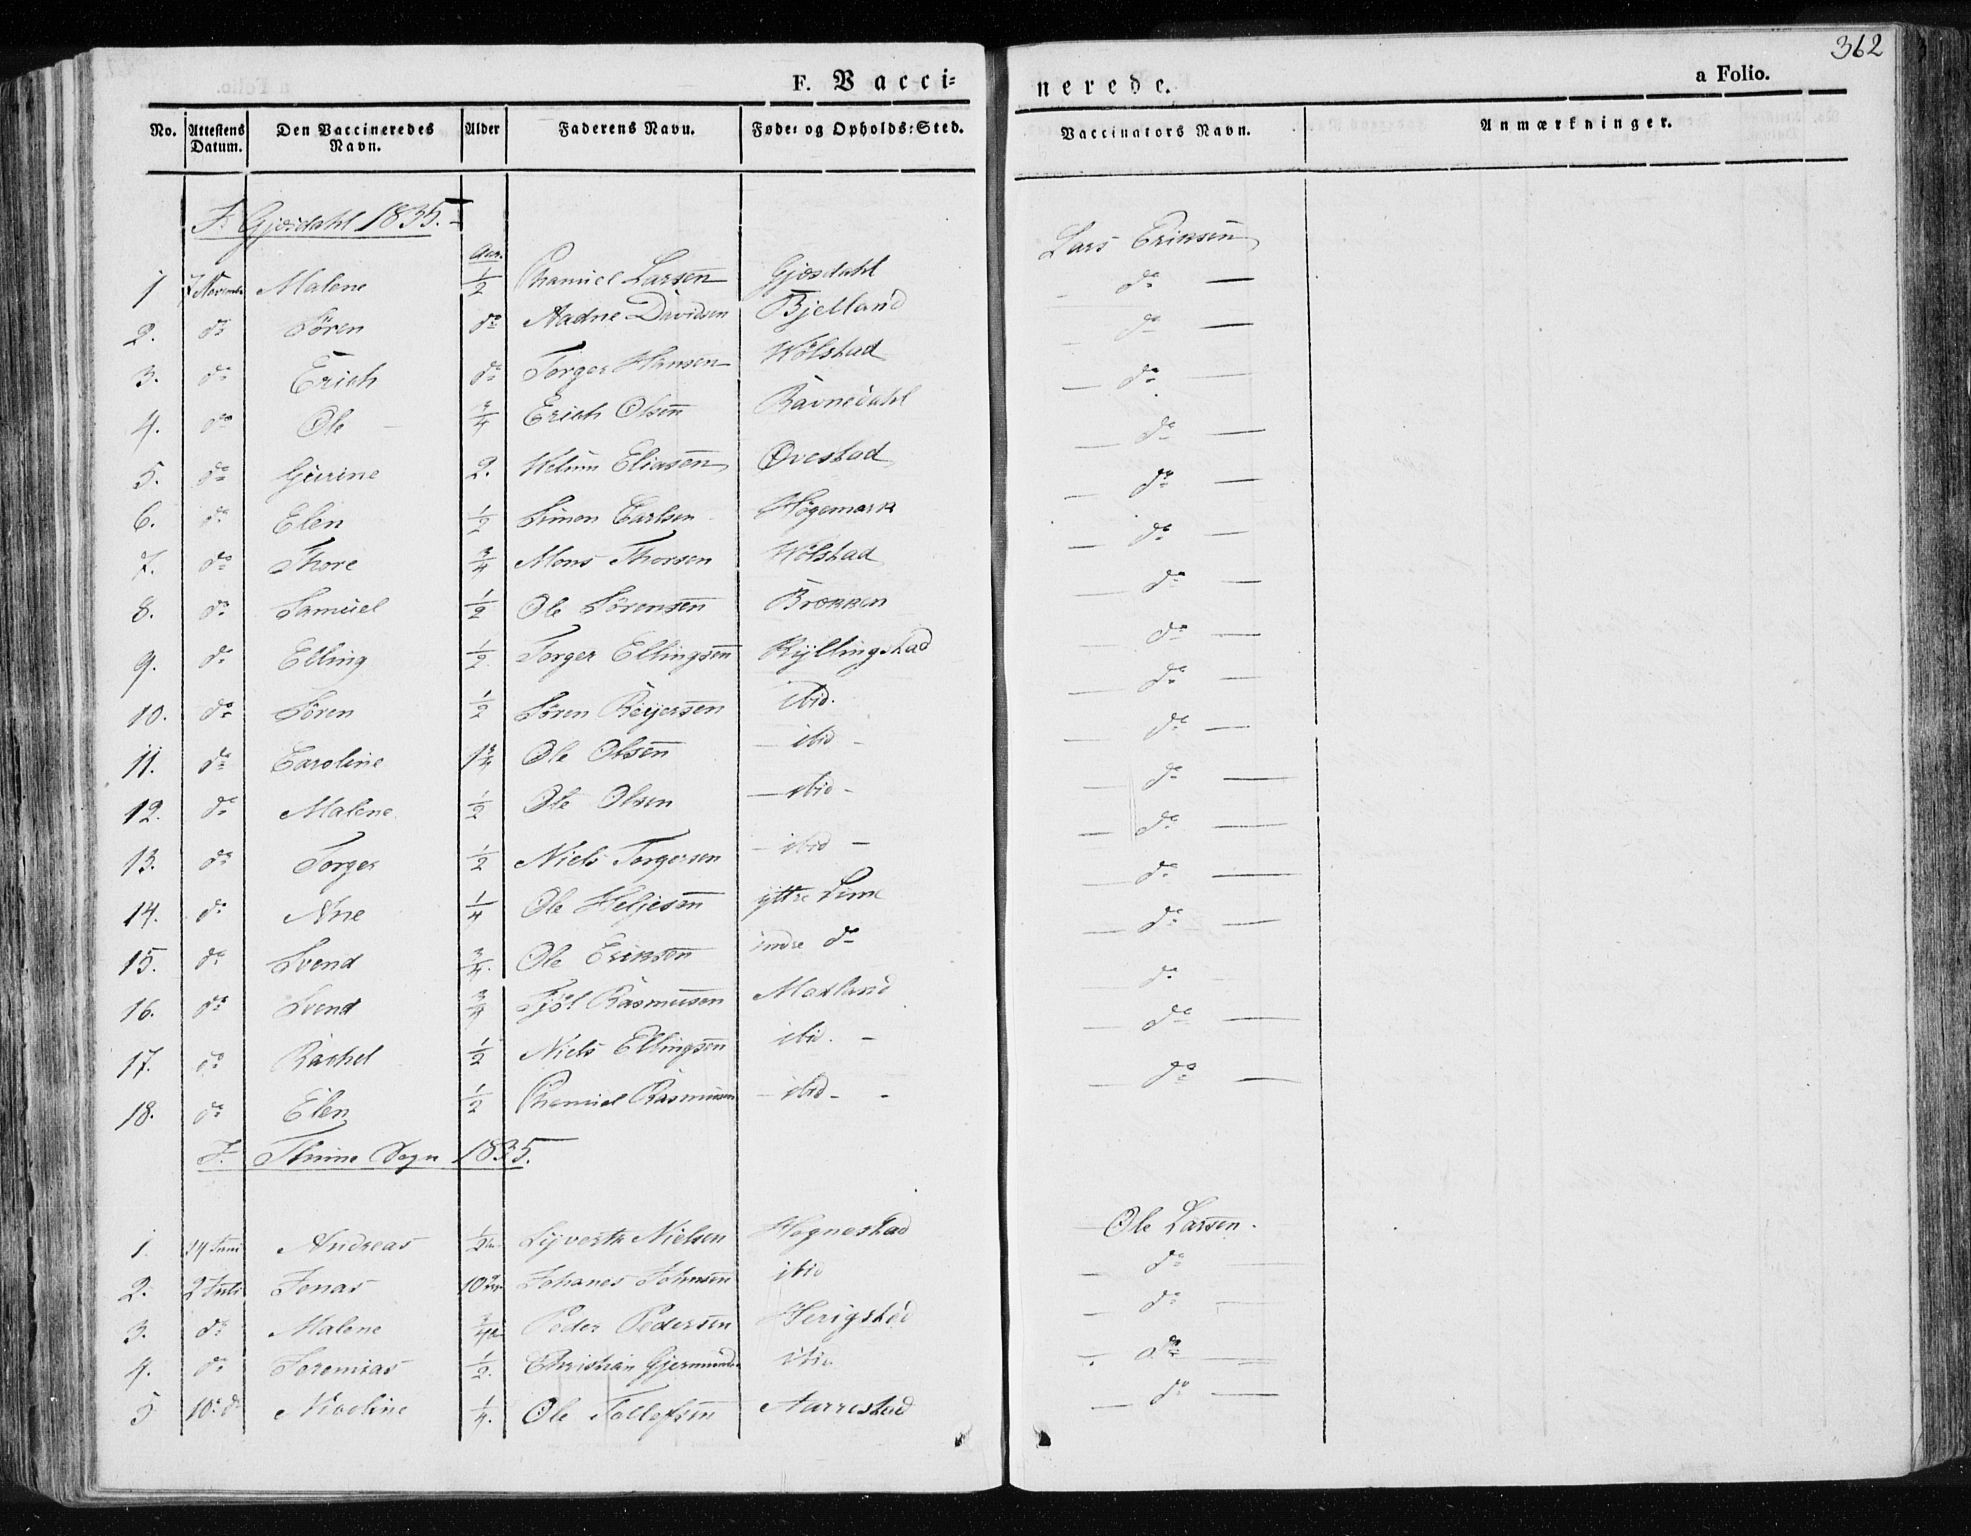 362
F. Vacci-
nerede.
a Folio.
No. Attestens Datum. Den Vaccineredes Navn. Alder Faderens Navn. Føde- og Opholds-Sted. Vaccinators Navn. Anmærkninger.
F. Gjesdahl 1835.
Aar.
1 7 November Malene 1/2 Larsen Gjesdahl Lars Eriksen
2. do Sören do Aadne Davidsen Bjelland do
3. do Erich do Torger Hansen Wölstad do
4. do Ole 3/4 Erich Olsen Ravnedahl do
5. do Gurine 2. Eliasen Ovestad do
6. do Elen 1/2 Simon Carlsen Högemark do
7. do Thore 3/4 Mons Thorsen Wölstad do
8. do Samuel 1/2 Ole Sörensen Brekken do
9. do Elling 1/2 Torger Ellingsen Kyllingstad do
10. do Sören 1/2 Sören Reijersen ibid. do
11. do Caroline 1 3/4 Ole Olsen ibid do
12. do Malene 1/2 Ole Olsen ibid do
13. do Torger 1/2 Niels Torgersen ibid do
14. do Ane 1/4 Ole Heljesen ijttre Lime do
15. do Svend 3/4. Ole Eriksen indre do do
16. do Svend 3/4 Rasmusen Madland do
17. do Rachel 1/2 Niels Ellingsen ibid. do
18. do Elen 1/2 Rasmusen ibid do
F. Thime Sogn 1835.
1. 24 Juni Andreas 1/2 Sijvert Nielsen Hognestad Ole Larsen.
2. 2 Juli Jonas 10 Johanes Johnsen ibid do
3. do Malene 3/4 Peder Pedersen Herigstad do
4. do Jeremias 1/2. Christian ibid do
5 10. do Nicoline 1/4. Ole Tollefsen Aarrestad do